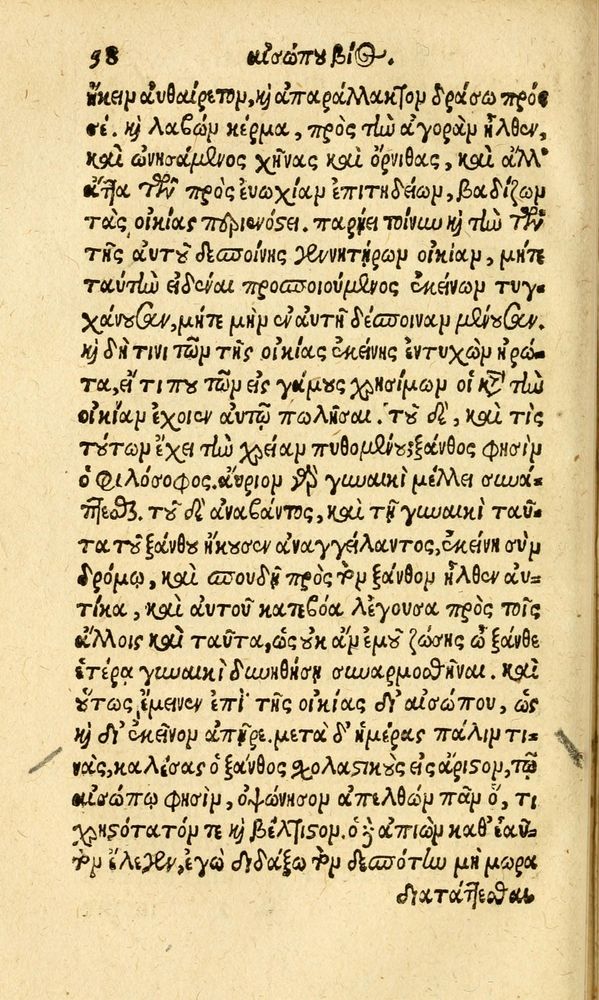 38 αἰσώπου βίος.
ἥκειν αὐθαίρετον, καὶ ἀπαράλλακτον δράσω πρός
σέ. καὶ λαβὼν κέρμα, πρὸς τὴν ἀγορὰν ἦλθεν,
καὶ ὠνησάμενος χῆνας καὶ ὄρνιθας, καὶ ἄλλ'
ἄττα τῶν πρὸς ἐυωχίαν ἐπιτηδείων, βαδίζων
τὰς οἰκίας περιενόστει. παρῄει τοίνυν καὶ τὴν τῶν
τῆς αὐτοῦ δεσποίνης γεννητήρων οἰκίαν, μήτε
ταύτην εἰδέναι προσποιούμενος ἐκείνων τυγ-
χάνουσαν, μήτε μὴν ἐν αὐτῇ δέσποιναν μένουσαν.
καὶ δή τινι τῶν τῆς οἰκίας ἐκείνης ἐντυχὼν ἠρώ-
τα, εἴ τι που τῶν εἰς γάμους χρησίμων οἱ κατὰ τὴν
οἰκίαν ἔχοιεν αὐτῷ πωλῆσαι. τοῦ δὲ, καὶ τίς
τούτων ἔχει τὴν χρείαν πυθομένου; ξάνθος φησὶν
ὁ φιλόσοφος. αὔριον γὰρ γυναικὶ μέλλει συνά-
πτεσθαι. τοῦ δ' ἀναβάντος, καὶ τῇ γυναικὶ ταῦ-
τα τοῦ ξάνθου ἤκουσεν ἀναγγείλαντος, ἐκείνη σὺν
δρόμῳ, καὶ σπουδῇ πρὸς τὸν ξάνθον ἦλθεν αὐ-
τίκα, καὶ αὐτοῦ κατεβόα λέγουσα πρὸς τοῖς
ἄλλοις καὶ ταῦτα, ὡς οὐκ ἂν ἐμοῦ ζώσης ὦ ξάνθε
ἑτέρᾳ γυναικὶ δυνηθήσῃ συναρμοσθῆναι. καὶ
οὕτως ἔμεινεν ἐπὶ τῆς οἰκίας δι' αἰσώπου, ὡς
καὶ δι' ἐκεῖνον ἀπῇρε. μετὰ δ' ἡμέρας πάλιν τι-
νὰς, καλέσας ὁ ξάνθος σχολαστικοὺς εἰς ἄριστον, τῷ
αἰσώπῳ φησὶν, ὀψώνησον ἀπελθὼν πᾶν ὅ, τι
χρηστότατόν τε καὶ βέλτιστον. ὁ δὲ ἀπιὼν καθ' ἑαυ-
τὸν ἔλεγεν, ἐγὼ διδάξω τὸν δεσπότην μὴ μωρὰ
διατάττεσθαι